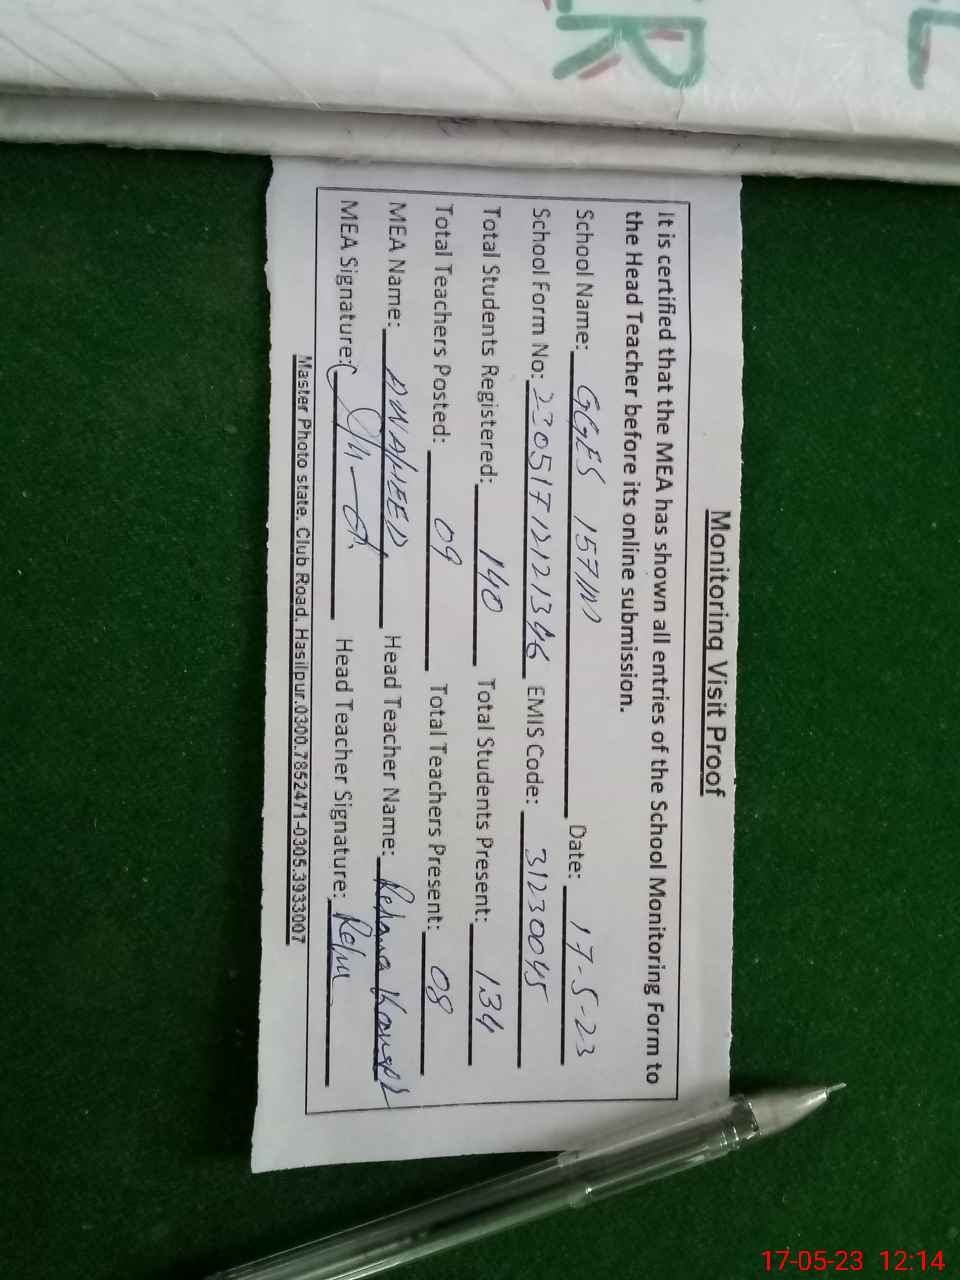 ER
L
Monitoring Visit Proof
It is certified that the MEA has shown all entries of the School Monitoring Form to
the Head Teacher before its online submission.
School Name: GGES 157/M Date: 17-5-23
School Form No: 23051712121346 EMIS Code: 31230045
Total Students Registered: 140 Total Students Present: 134
Total Teachers Posted: 09 Total Teachers Present: 08
MEA Name: A WAHEED Head Teacher Name: Rehana Kausar
MEA Signature: Head Teacher Signature:
Master Photo state. Club Road. Hasilpur.0300.7852471-0305.3933007
17-05-23 12:14